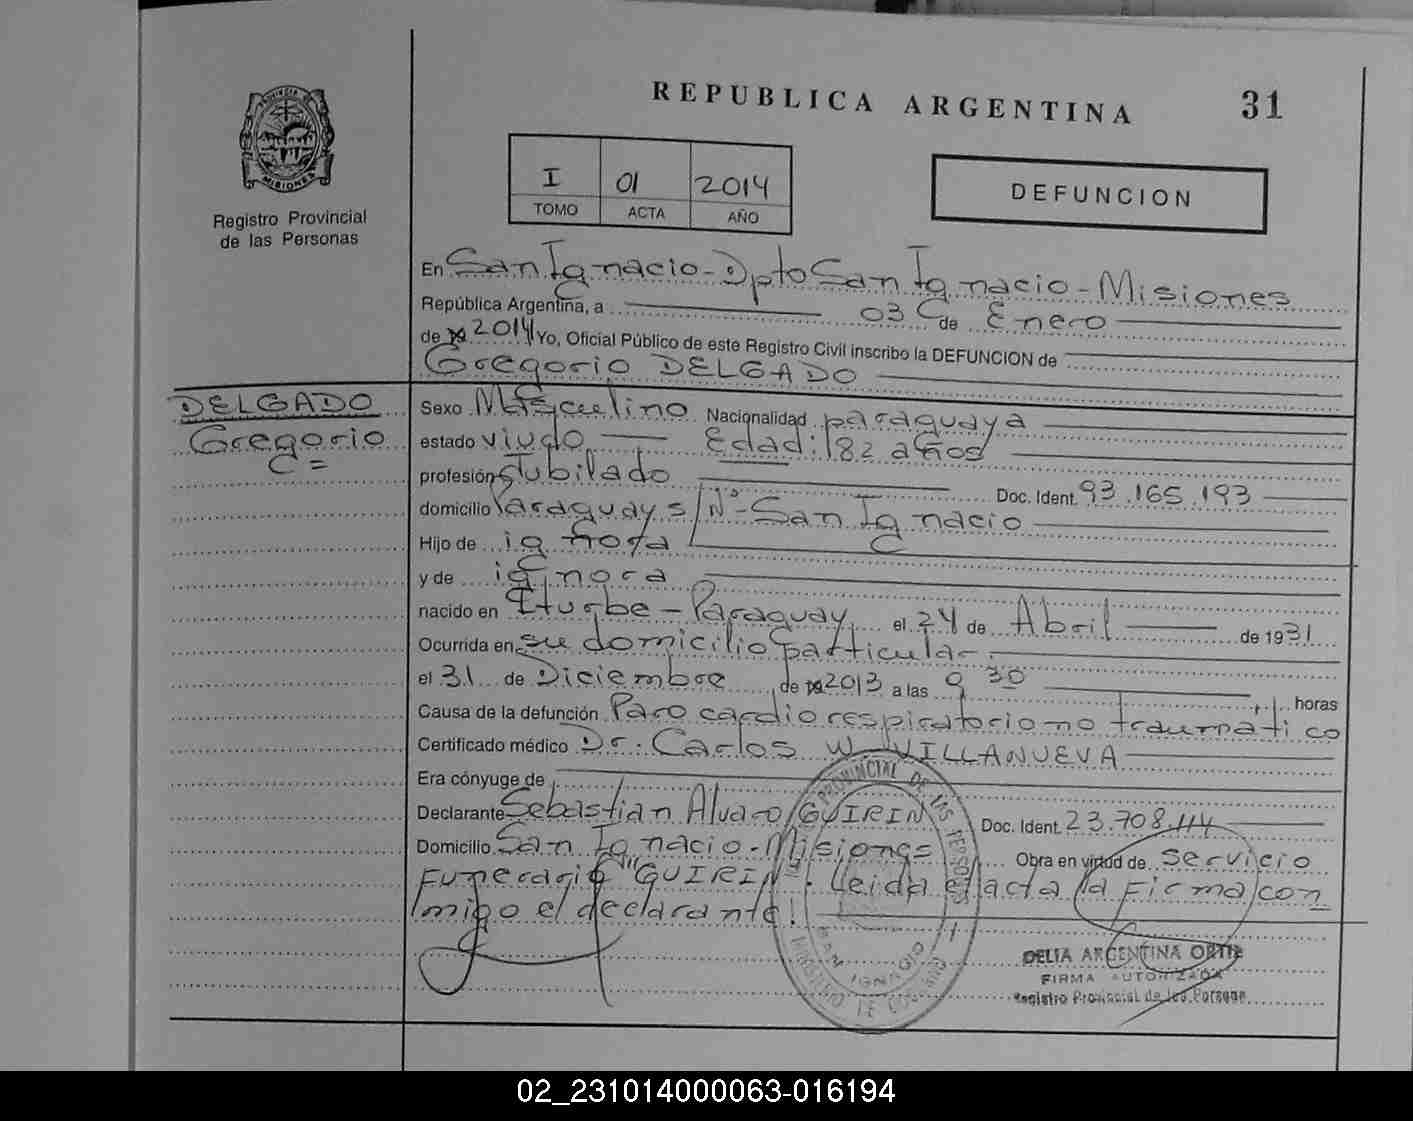 REPUBLICA ARGENTINA 31
PROVINCIA DE
MISIONES
Registro Provincial
de las Personas
I 01 2014
TOMO ACTA AÑO
DEFUNCION
En San Ignacio - Dpto San Ignacio - Misiones
República Argentina, a 03 de Enero
de 19 2014 Yo, Oficial Público de este Registro Civil inscribo la DEFUNCION de
Gregorio DELGADO
DELGADO
Gregorio
C=
Sexo Masculino Nacionalidad paraguaya
estado viudo Edad: 82 años
profesión Jubilado Doc. Ident. 93.165.193
domicilio Paraguay s/Nº - San Ignacio
Hijo de ignora
y de ignora
nacido en Iturbe - Paraguay el 24 de Abril de 1931
Ocurrida en su domicilio particular.
el 31 de Diciembre de 19 2013 a las 9 30 horas
Causa de la defunción Paro cardiorespiratorio no traumático
Certificado médico Dr. Carlos W. VILLANUEVA
Era cónyuge de
Declarante Sebastian Alvaro GUIRIN Doc. Ident. 23.708.114
Domicilio San Ignacio - Misiones Obra en virtud de Servicio
Funerario "GUIRIN". Leida el acta la Firma con
migo el declarante!
PROVINCIAL DE LAS PERSONAS
SAN IGNACIO
MINISTERIO DE GOBIERNO
DELIA ARGENTINA ORTIZ
FIRMA AUTORIZADA
Registro Provincial de las Personas
02_231014000063-016194